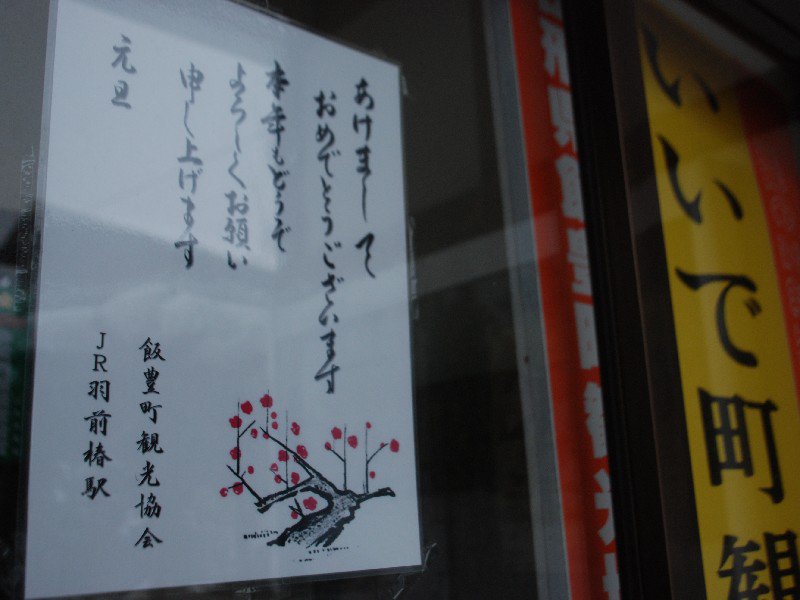 あけまして
おめでとうございます
本年もどうぞ
よろしくお願い
申し上げます
元旦
飯豊町観光協会
JR羽前椿駅
県飯豊町観光
いいで町観